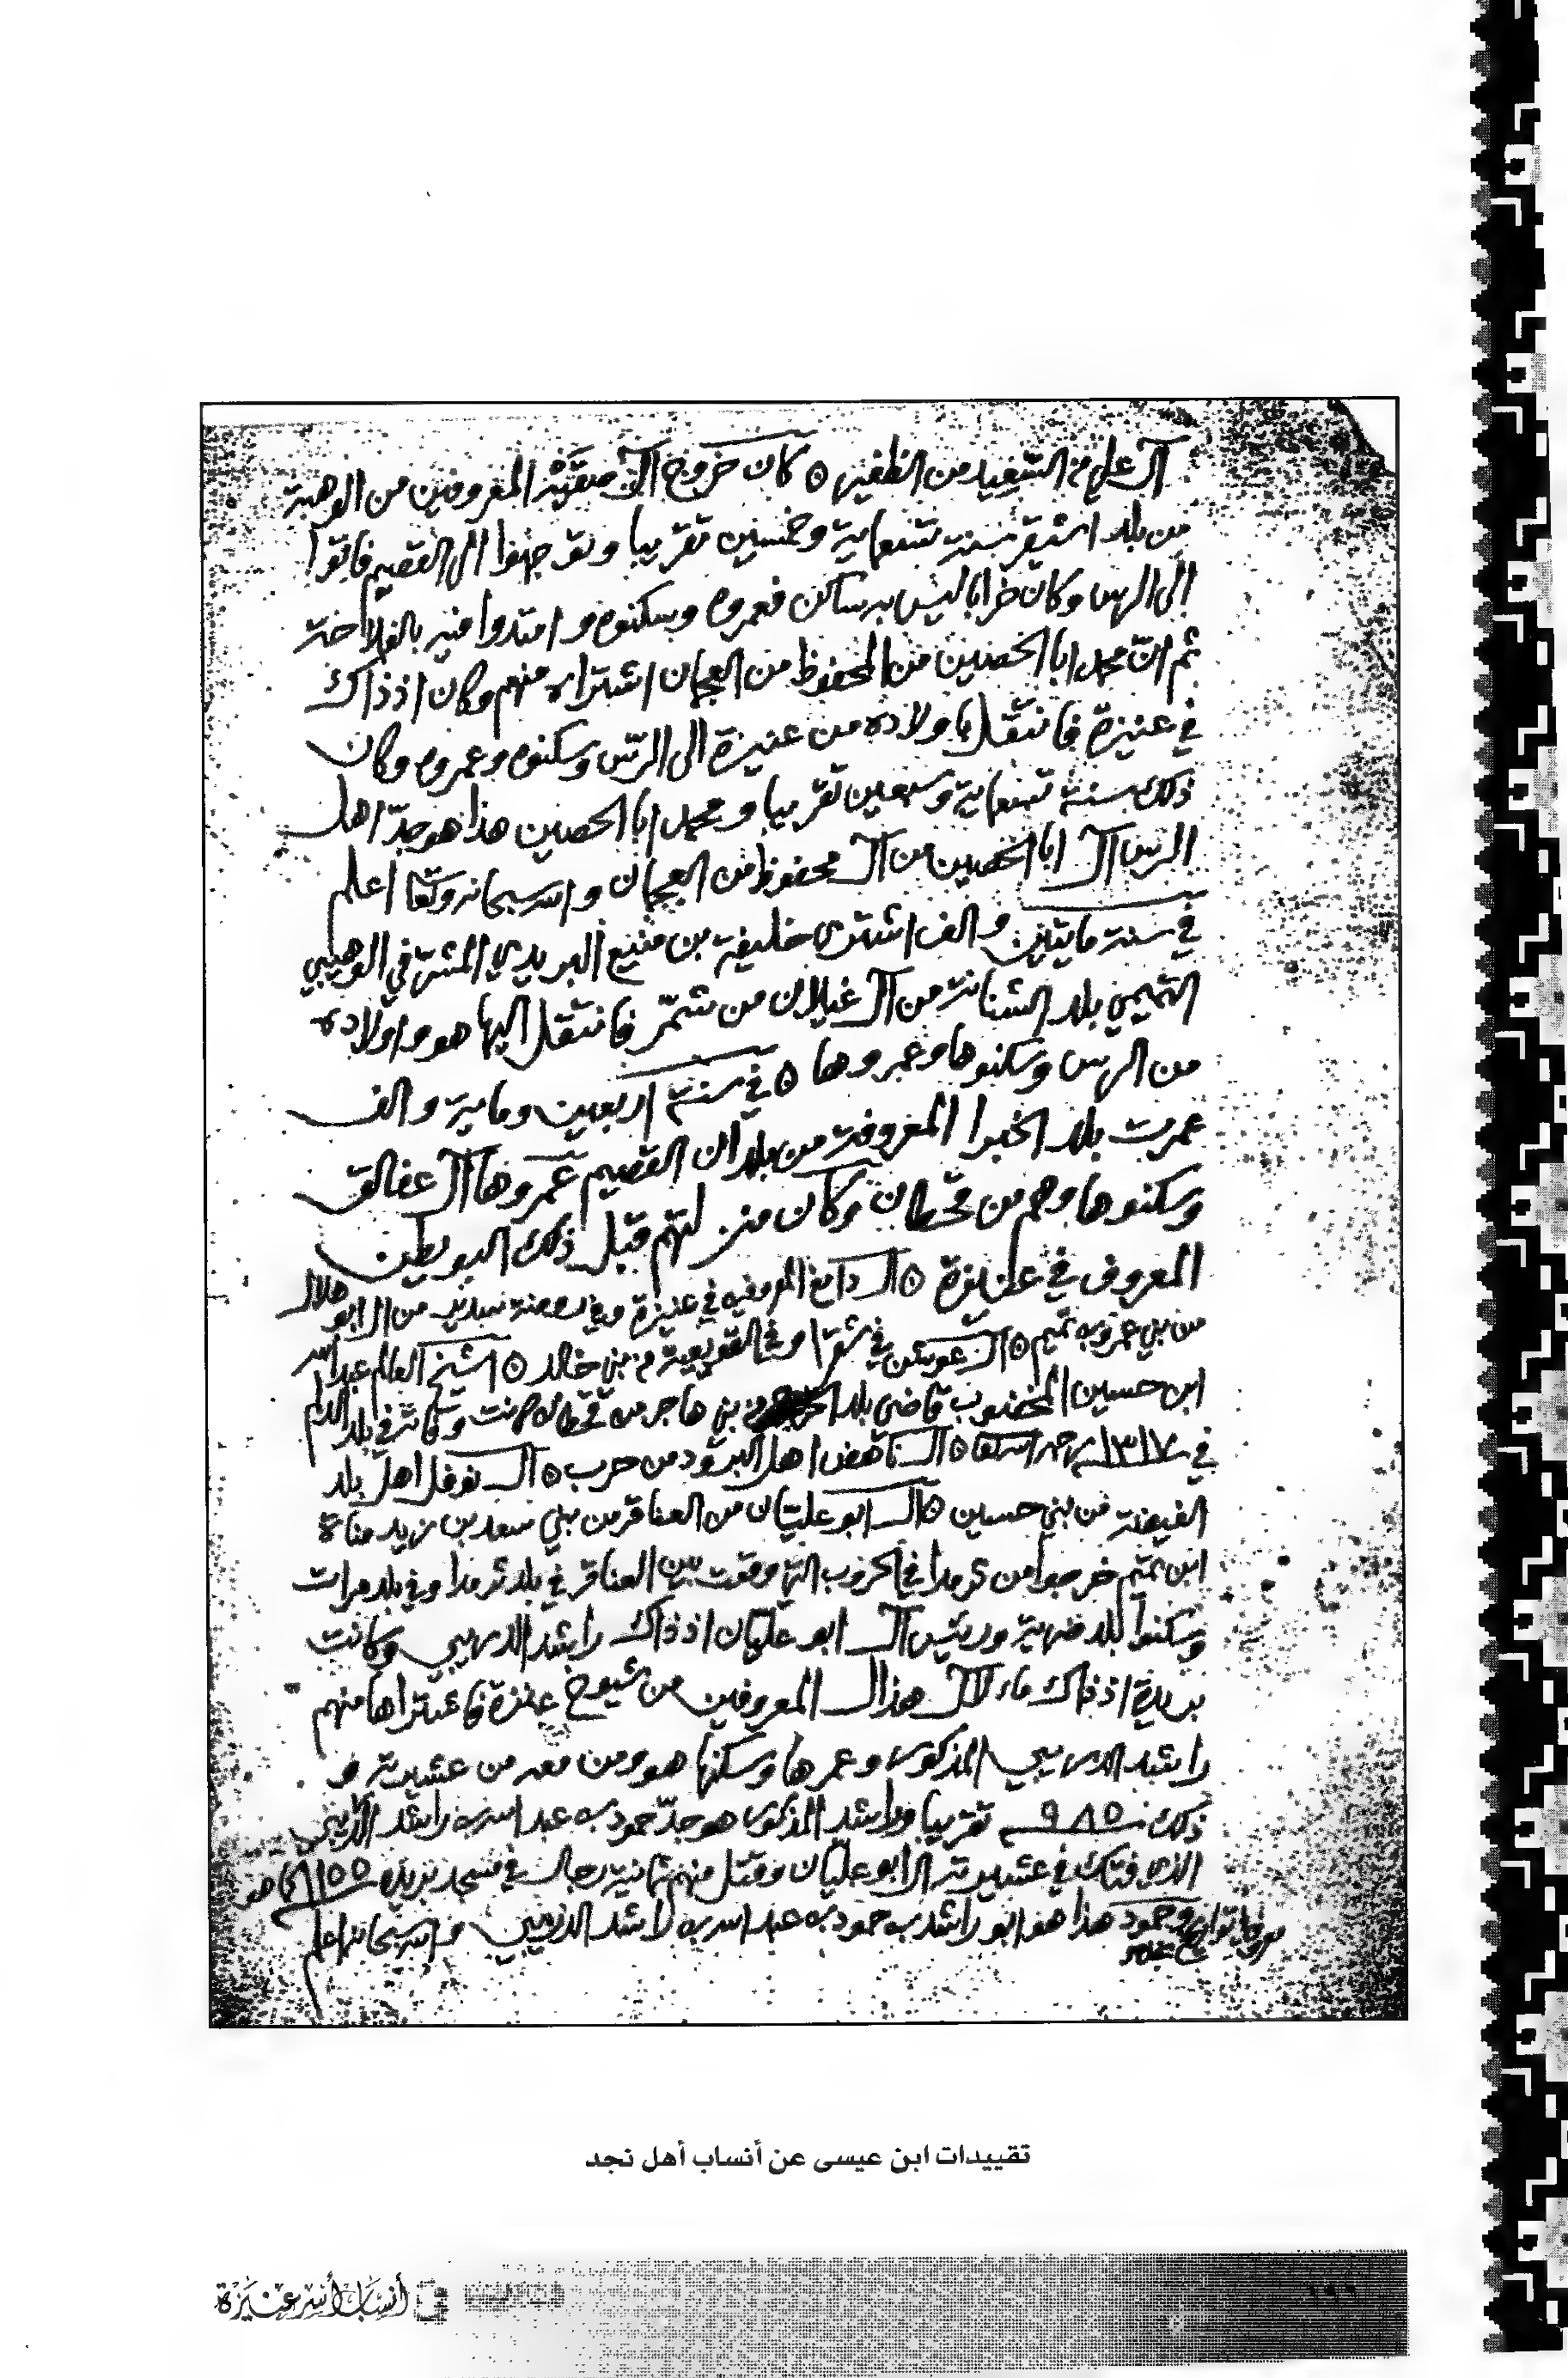 آل علي من السعيد من الظفير ه كان خروج آل صقيه المعروفين من الوهبة
من بلد اشيقر سنة تسعماية وخمسين تقريبا وتوجهوا الى القصيم فاتوا
الى الرس وكان خرابا ليس به ساكن فعمروه وسكنوه وامتدوا فيه بالفلاحة
ثم ان محمد ابا الحصين من المحفوظ من العجمان اشتراه منهم وكان اذ ذاك
في عنيزة فانتقل باولاده من عنيزة الى الرس وسكنوه وعمروه وكان
ذلك سنة تسعماية وسبعين تقريبا ومحمد ابا الحصين هذا هو جد اهل
الرس آل ابا الحصين من آل محفوظ من العجمان والله سبحانه وتعا اعلم
في سنة مايتين والف اشترى خليفة بن منيع البريدي المشرفي الوهيبي
التميمي بلد الشنانة من آل غيلان من شمر فانتقل اليها هو واولاده
من الرس وسكنوها وعمروها ه في سنة اربعين وماية والف
عمرت بلد الخبرا المعروفة من بلدان القصيم عمروها آل عفالق
وسكنوها وهم من قحطان وكان منزلتهم قبل ذلك البويطن
المعروف في عنيزة ه آل دامغ المعروفين في عنيزة وفي روضة سدير من آل ابو هلال
من بني عمرو بن تميم ه آل عويشن في شقرا وفي القويعية من بني خالد ه الشيخ العالم عبدالله
ابن حسين المخضوب قاضي بلد الخرج من بني هاجر من قحطان كانت وفاته في بلد الدلم
في ١٣١٧ رحمه الله تعا ه آل ناهض اهل البرود من حرب ه آل نوفل اهل بلد
الفيضة من بني حسين ه آل ابو عليان من العناقر من بني سعد بن زيد مناة
ابن تميم خرجوا من ثرمدا في الحروب التي وقعت بين العناقر في بلد ثرمدا وفي بلد مرات
وسكنوا بلد ضرية ورئيس آل ابو عليان اذ ذاك راشد الدريبي وكانت
بريدة اذ ذاك ماء لآل هذال المعروفين من شيوخ عنزة فاشتراها منهم
راشد الدريبي المذكور وعمرها وسكنها هو ومن معه من عشيرته و
ذلك ٩٨٥ تقريبا وراشد المذكور هو جد حمود بن عبد الله بن راشد الدريبي
الذي فتك في عشيرته آل ابو عليان وقتل منهم ثمانية رجال في مسجد بريدة ١١٥٥ كما هو
معروف وحمود هذا هو ابو راشد بن حمود بن عبد الله بن راشد الدريبي والله سبحانه اعلم
تقييدات ابن عيسى عن أنساب أهل نجد
أنساب أسر عنيزة